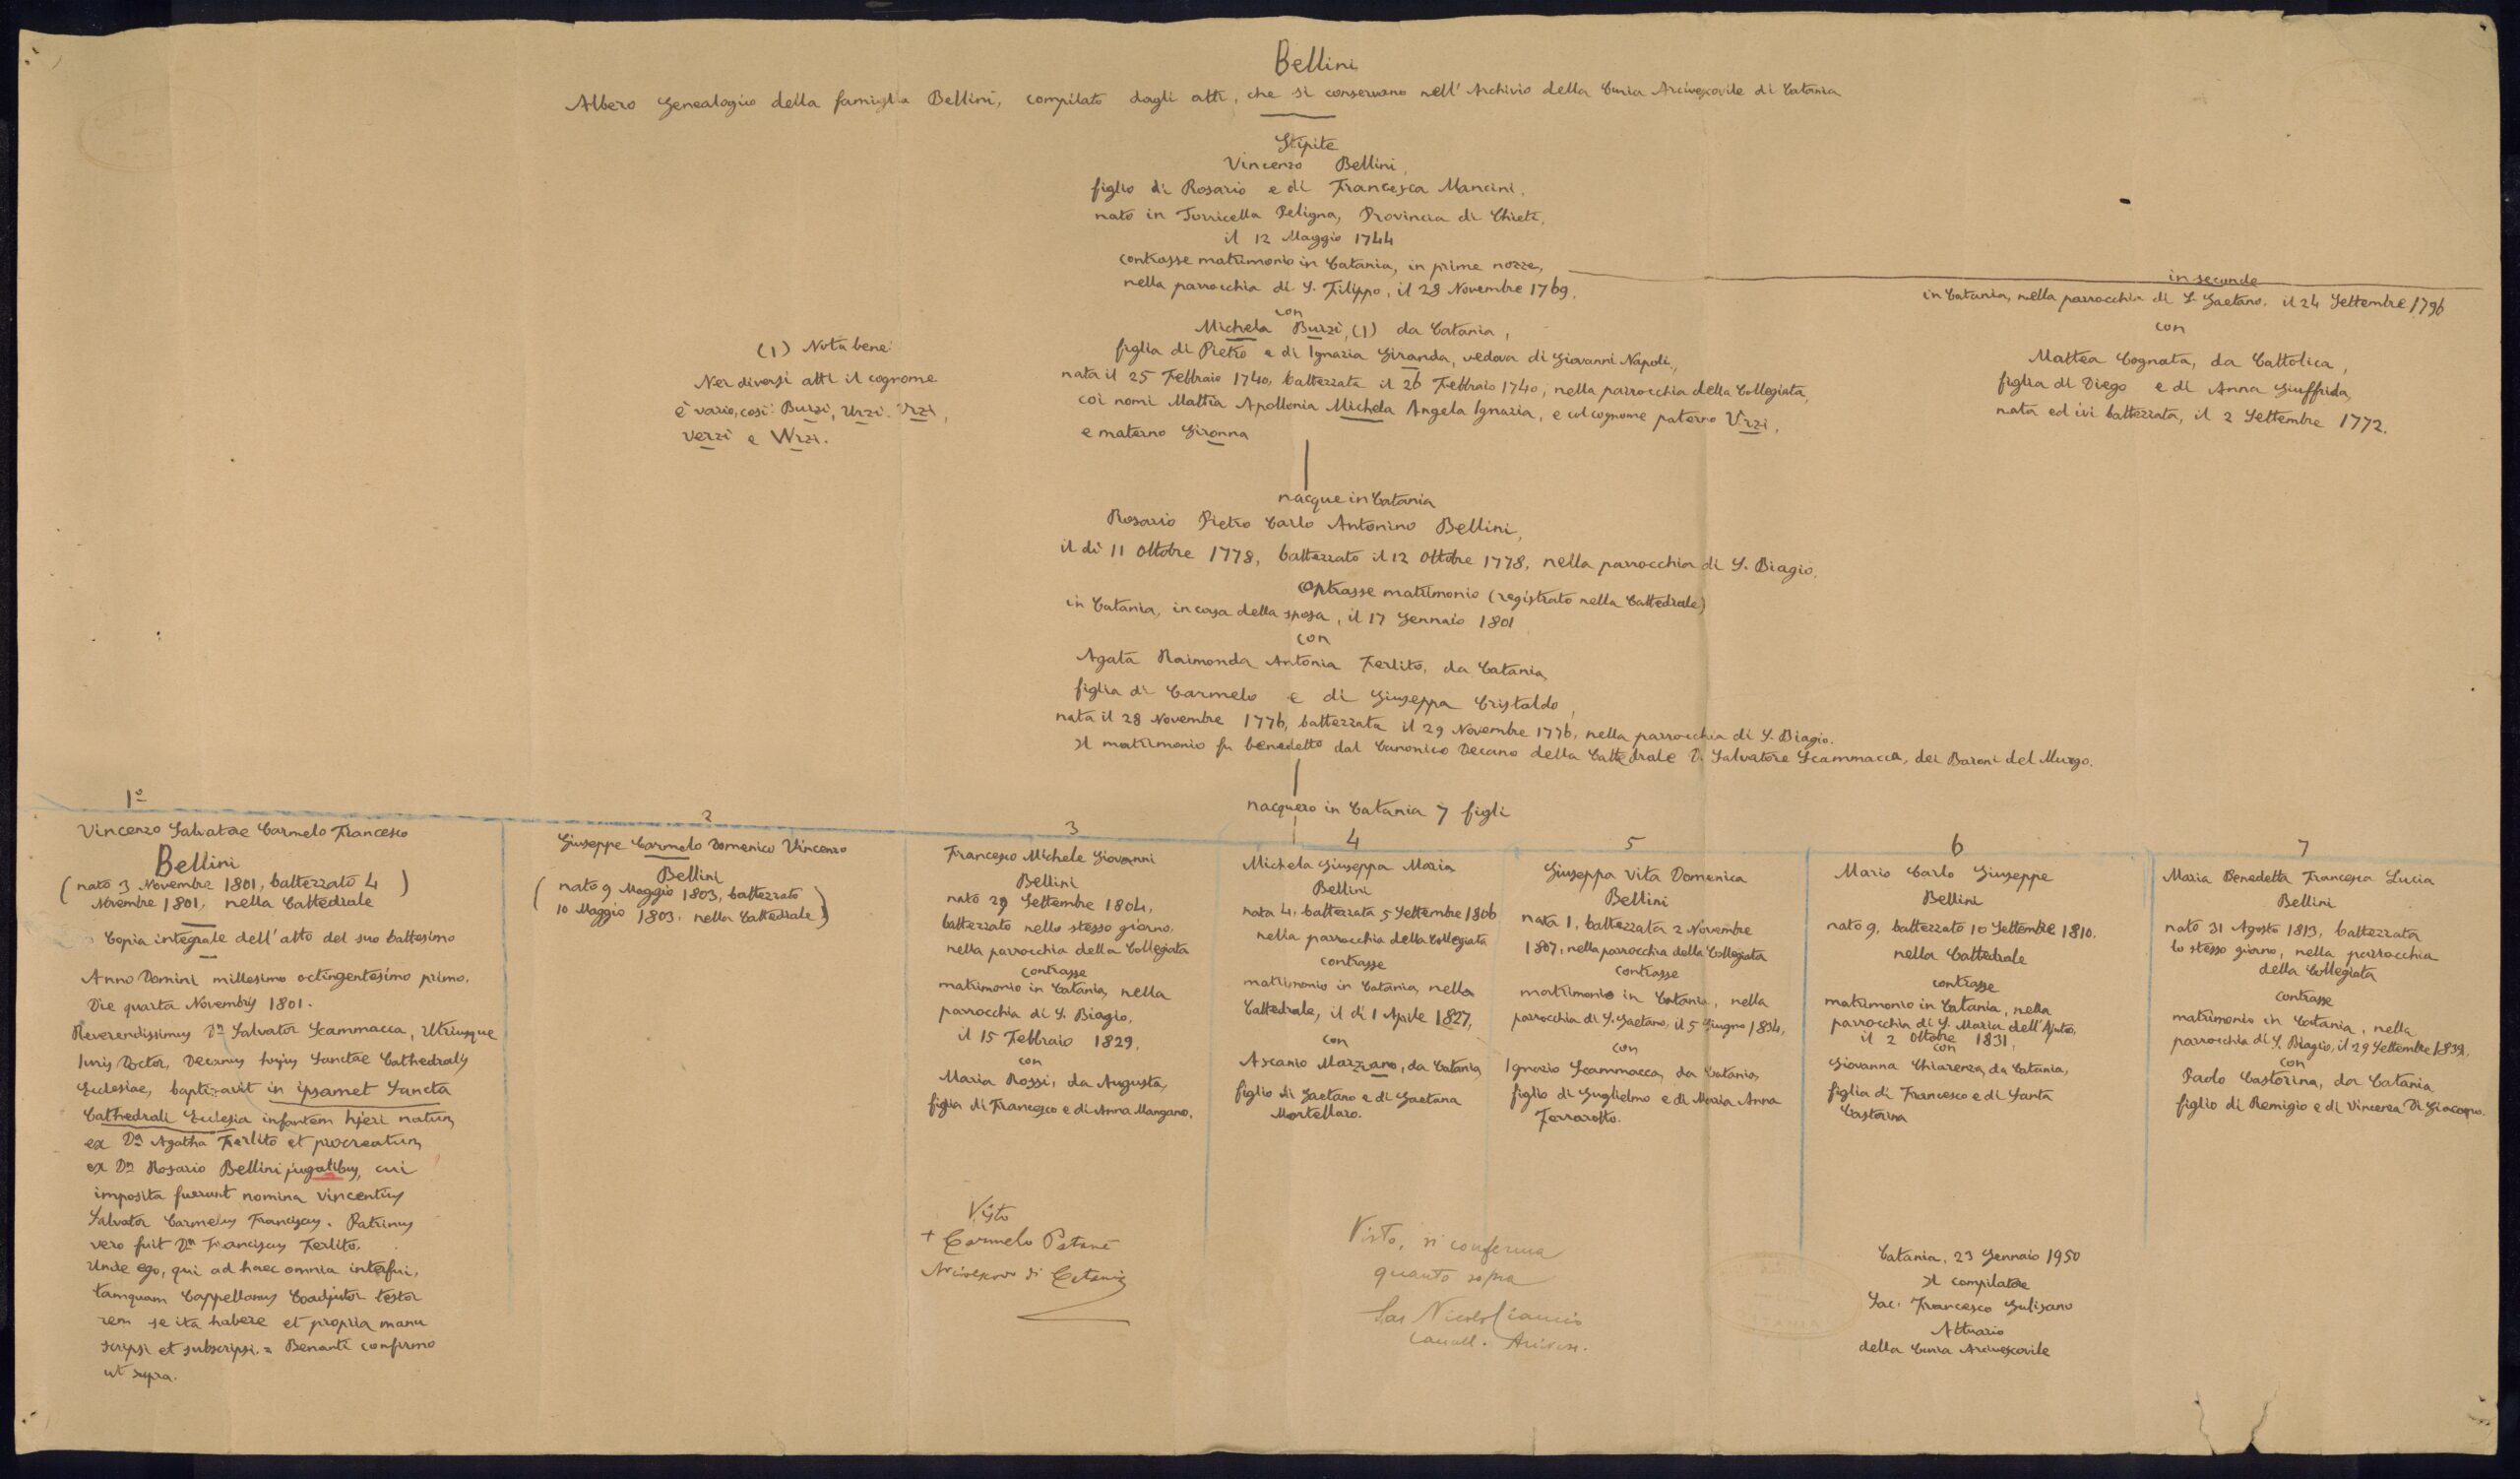 Bellini
Albero Genealogico della famiglia Bellini, compilato dagli atti, che si conservano nell'Archivio della Curia Arcivescovile di Catania
Stipite
Vincenzo Bellini,
figlio di Rosario e di Francesca Mancini,
nato in Torricella Peligna, Provincia di Chieti,
il 12 Maggio 1744
contrasse matrimonio in Catania, in prime nozze,
nella parrocchia di S. Filippo, il 28 Novembre 1769,
con
Michela Burzì, (1) da Catania,
figlia di Pietro e di Ignazia Giranda, vedova di Giovanni Napoli,
nata il 25 Febbraio 1740, battezzata il 26 Febbraio 1740, nella parrocchia della Collegiata,
coi nomi Mattia Apollonia Michela Angela Ignazia, e col cognome paterno Vrzì,
e materno Gironna
in seconde
in Catania, nella parrocchia di S. Gaetano, il 24 Settembre 1796
con
Mattea Cognata, da Cattolica,
figlia di Diego e di Anna Giuffrida,
nata ed ivi battezzata, il 2 Settembre 1772.
(1) Nota bene:
Nei diversi atti il cognome
è vario, così: Burzì, Urzì, Vrzì,
Verzì e Wrzì.
nacque in Catania
Rosario Pietro Carlo Antonino Bellini,
il dì 11 Ottobre 1778, battezzato il 12 Ottobre 1778, nella parrocchia di S. Biagio,
contrasse matrimonio (registrato nella Cattedrale)
in Catania, in casa della sposa, il 17 Gennaio 1801
con
Agata Raimonda Antonia Ferlito, da Catania,
figlia di Carmelo e di Giuseppa Cristaldo,
nata il 28 Novembre 1776, battezzata il 29 Novembre 1776, nella parrocchia di S. Biagio.
Il matrimonio fu benedetto dal Canonico Decano della Cattedrale D. Salvatore Scammacca, dei Baroni del Murgo.
nacquero in Catania 7 figli
1º
Vincenzo Salvatore Carmelo Francesco
Bellini
(nato 3 Novembre 1801, battezzato 4
Novembre 1801, nella Cattedrale)
Copia integrale dell'atto del suo battesimo
Anno Domini millesimo octingentesimo primo.
Die quarta Novembris 1801.
Reverendissimus Dn Salvator Scammacca, Utriusque
Iuris Doctor, Decanus hujus Sanctae Cathedralis
Ecclesiae, baptizavit in ipsamet Sancta
Cathedrali Ecclesia infantem hjeri natum
ex Da Agatha Ferlito et procreatum
ex Dn Rosario Bellini jugalibus, cui
imposita fuerunt nomina Vincentius
Salvator Carmelus Franciscus. Patrinus
vero fuit Dn Franciscus Ferlito.
Unde ego, qui ad haec omnia interfui,
tamquam Cappellanus Coadjutor testor
rem se ita habere et propria manu
scripsi et subscripsi. = Benanti confirmo
ut supra.
2
Giuseppe Carmelo Domenico Vincenzo
Bellini
(nato 9 Maggio 1803, battezzato
10 Maggio 1803, nella Cattedrale)
3
Francesco Michele Giovanni
Bellini
nato 29 Settembre 1804,
battezzato nello stesso giorno,
nella parrocchia della Collegiata
contrasse
matrimonio in Catania, nella
parrocchia di S. Biagio,
il 15 Febbraio 1829,
con
Maria Rossi, da Augusta,
figlia di Francesco e di Anna Mangano.
4
Michela Giuseppa Maria
Bellini
nata 4, battezzata 5 Settembre 1806
nella parrocchia della Collegiata
contrasse
matrimonio in Catania, nella
Cattedrale, il dì 1 Aprile 1827,
con
Ascanio Marzzano, da Catania,
figlio di Gaetano e di Gaetana
Mortellaro.
5
Giuseppa Vita Domenica
Bellini
nata 1, battezzata 2 Novembre
1807, nella parrocchia della Collegiata
contrasse
matrimonio in Catania, nella
parrocchia di S. Gaetano, il 5 Giugno 1834,
con
Ignazio Scammacca, da Catania,
figlio di Guglielmo e di Maria Anna
Ferrarotto.
6
Mario Carlo Giuseppe
Bellini
nato 9, battezzato 10 Settembre 1810,
nella Cattedrale
contrasse
matrimonio in Catania, nella
parrocchia di S. Maria dell'Ajuto,
il 2 Ottobre 1831,
con
Giovanna Chiarenza, da Catania,
figlia di Francesco e di Santa
Castorina
7
Maria Benedetta Francesca Lucia
Bellini
nato 31 Agosto 1813, battezzata
lo stesso giorno, nella parrocchia
della Collegiata
contrasse
matrimonio in Catania, nella
parrocchia di S. Biagio, il 29 Settembre 1839,
con
Paolo Castorina, da Catania
figlio di Remigio e di Vincenza Di Giacomo.
Visto
+ Carmelo Patanè
Arcivescovo di Catania
Visto, si conferma
quanto sopra
Sac Nicolò Ciancio
Cancell. Arcives.
Catania, 23 Gennaio 1950
Il compilatore
Sac. Francesco Gulisano
Attuario
della Curia Arcivescovile